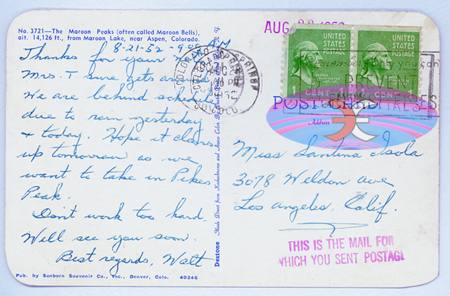 No. 3721—The Maroon Peaks (often called Maroon Bells),
alt. 14,126 ft., from Maroon Lake, near Aspen, Colorado.
8-21-52
Thanks for your
Mrs. T sure gets
We are behind
due to rain yesterday
& today. Hope it clears
up tomorrow as we
want to take in Pikes
Peak.
Don't work too hard.
Will see you soon.
Best regards, Walt
Pub. by Sanborn Souvenir Co., Inc., Denver, Colo. 40246
UNITED STATES POSTAGE
UNITED STATES POSTAGE
POST CARD
Address
Miss Santina Isola
3078 Weldon Ave
Los Angeles, Calif.
THIS IS THE MAIL FOR
WHICH YOU SENT POSTAGE